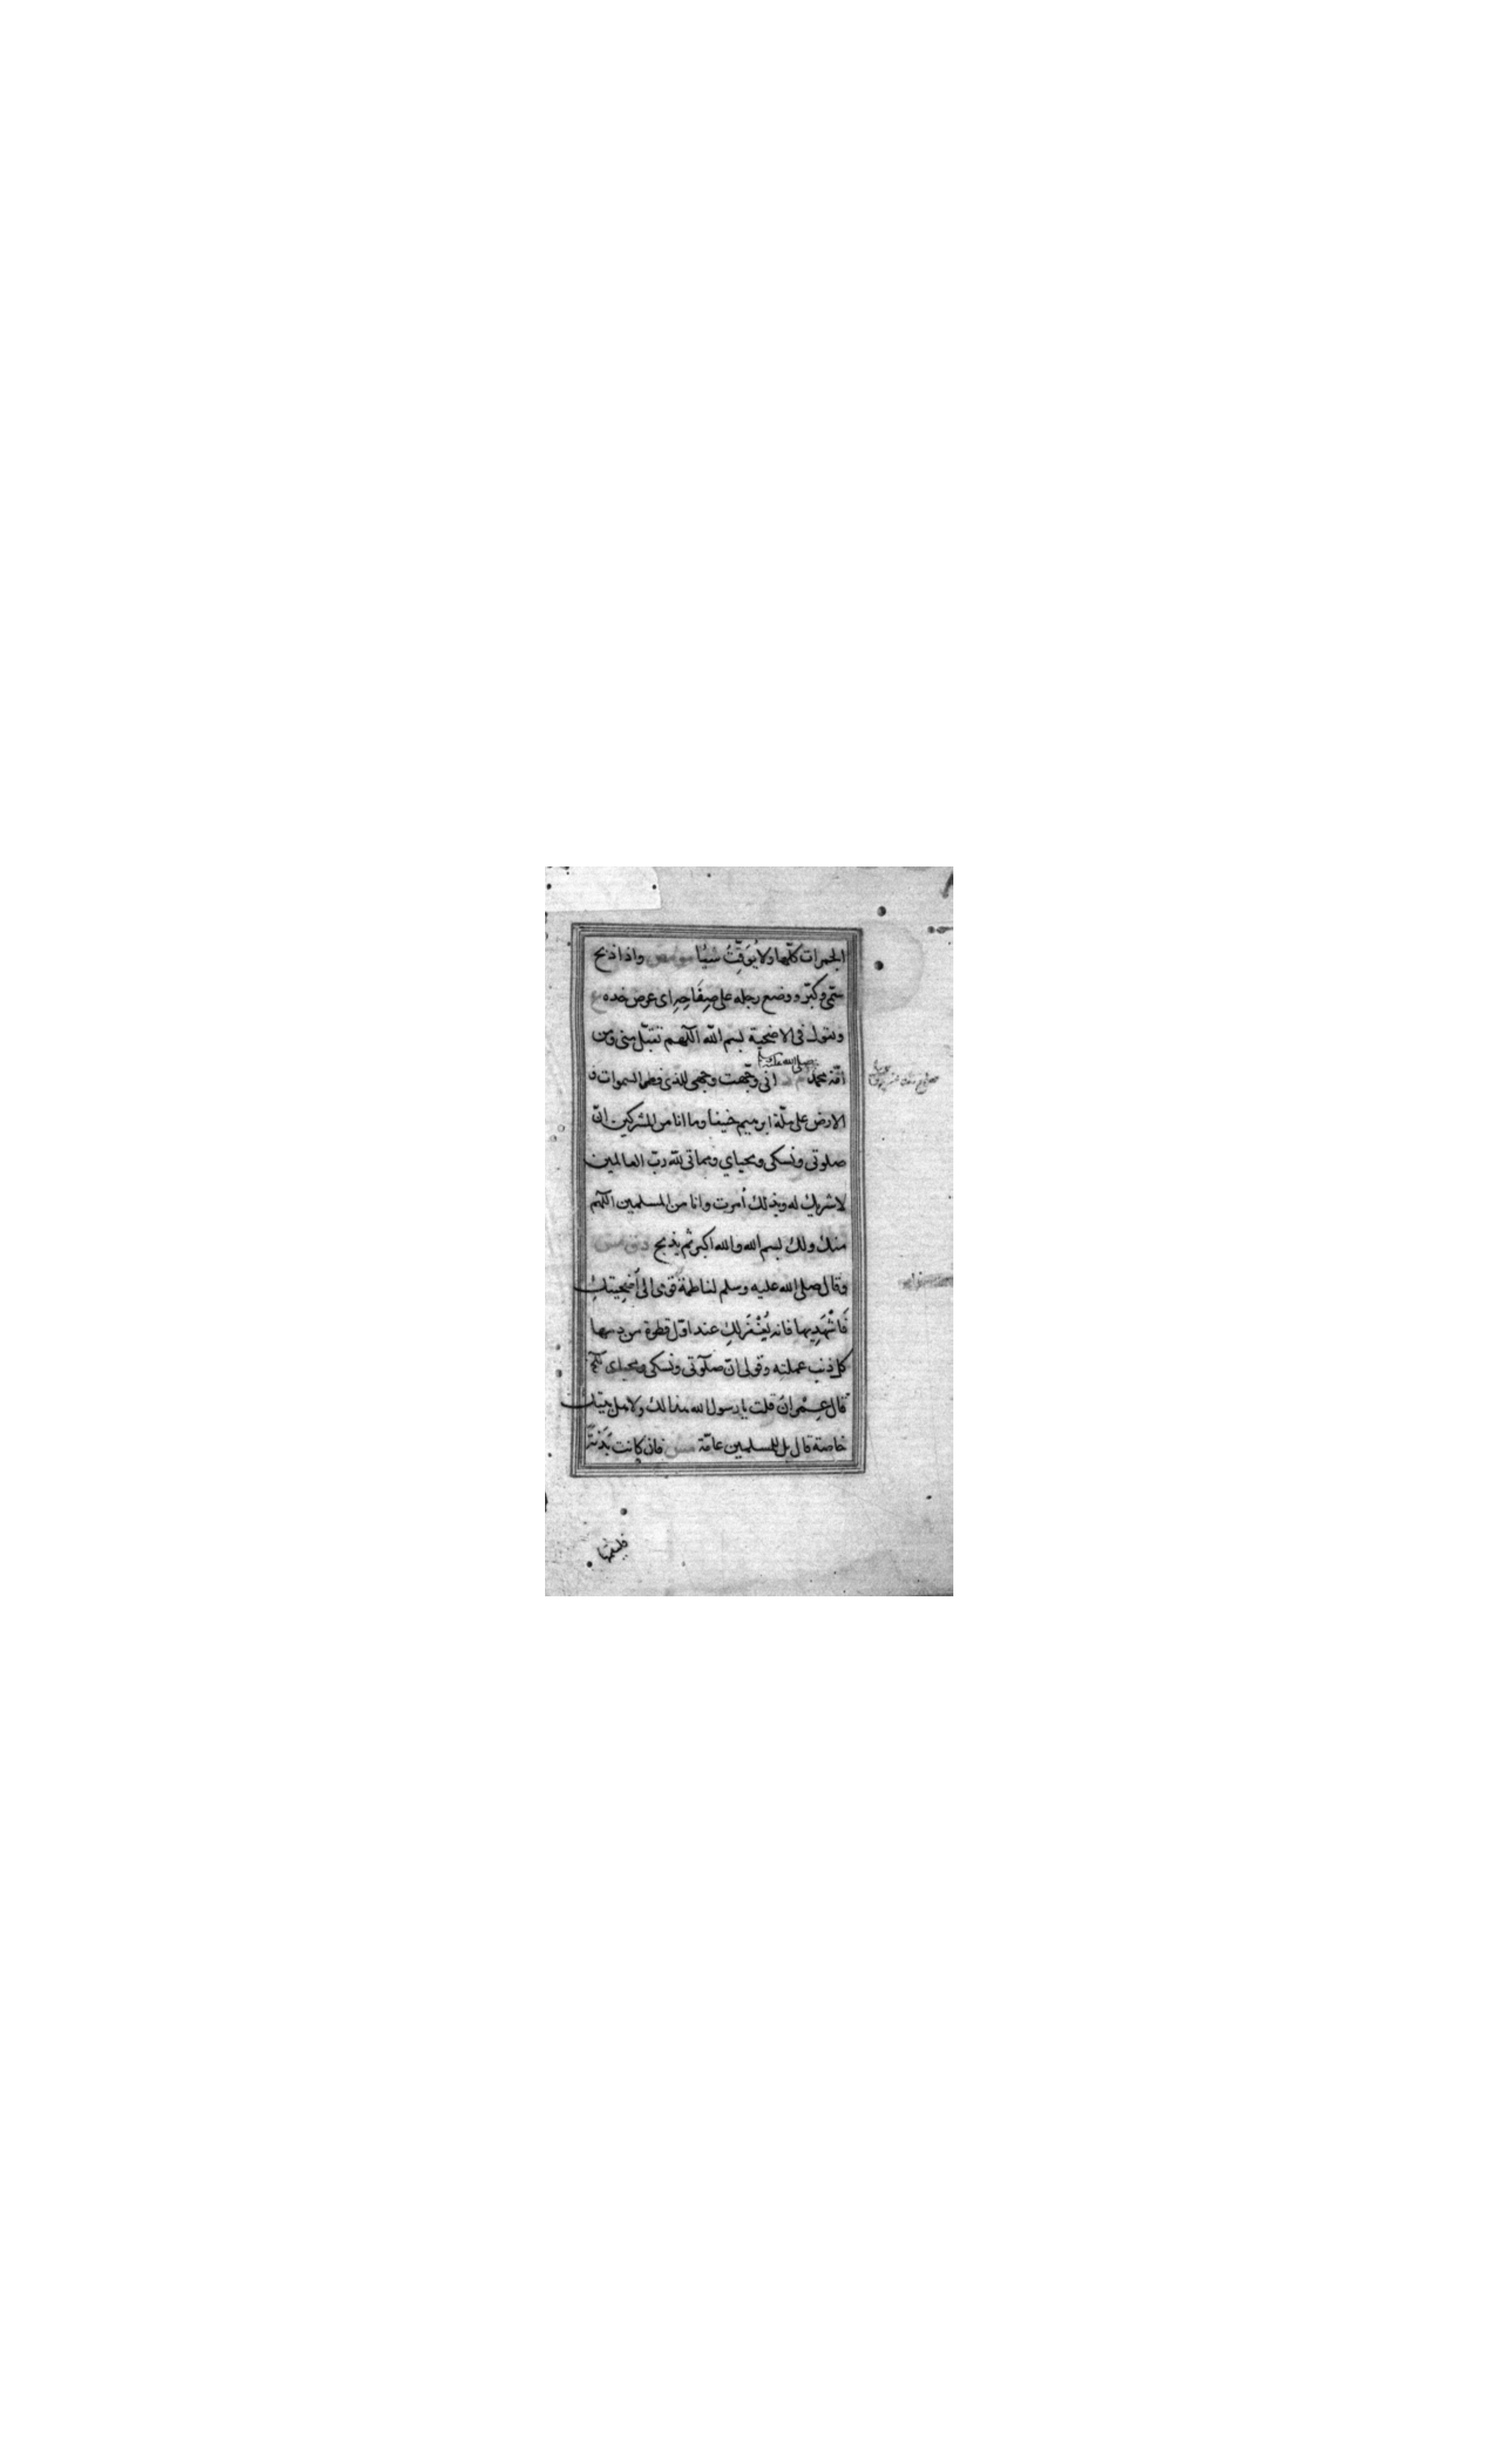 الجمرات كلّها ولا يُوَقِّتُ شيئا مو مص واذا ذبح
سمّى وكبّر ووضع رجله على صِفَاحِهِ اى عرض خده ع
ويقول فى الاضحية بسم الله اللّهم تقبّل منى ومن
امّة محمد صلى الله عليه وسلم انى وجّهت وجهى للذى فطر السموات و
الارض على ملّة ابرهيم حنيفا وما انا من المشركين انّ
صلوتى ونسكى ومحياي ومماتى لله ربّ العالمين
لا شريك له وبذلك أُمرت وانا من المسلمين اللّهم
منك ولك بسم الله والله اكبر ثم يذبح دق مس
وقال صلى الله عليه وسلم لفاطمة قومى الى أضحيتكِ
فَاشْهَدِيها فانه يُغْفَرُ لكِ عند اوّل قطرة من دمها
كل ذنب عملته وقولى انّ صلوتى ونسكى ومحياى الخ
قال عِمْرانُ قلت يا رسول الله هذا لك ولاهل بيتك
خاصة قال بل للمسلمين عامّة مس فان كانت بَدَنَةً
فليقمها